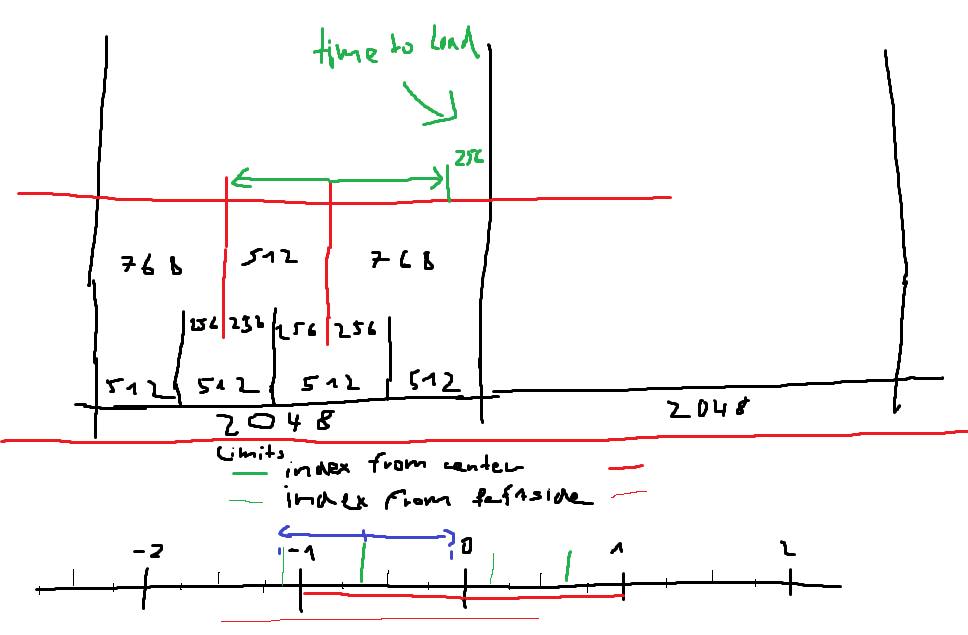 time to load
256
768 512 768
256 256 256 256
512 512 512 512
2048 2048
Limits
index from center
index from leftside
-2 -1 0 1 2